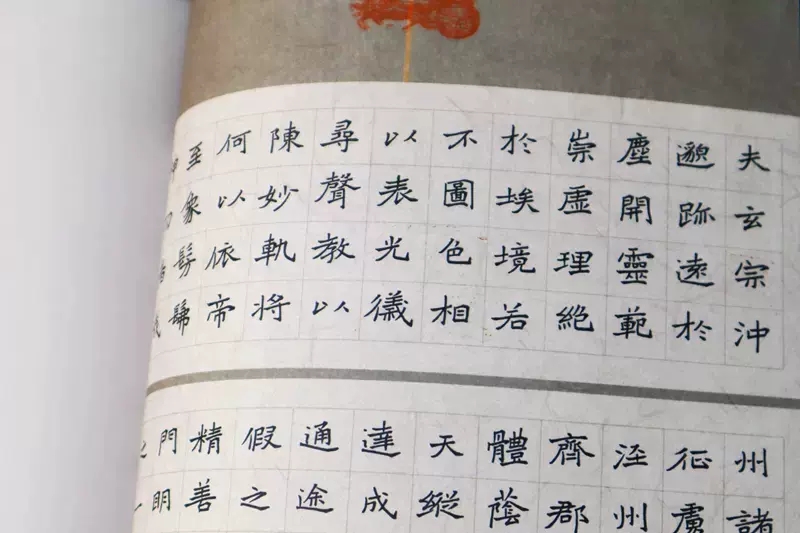 夫玄宗沖
邈跡遠於
塵開靈範
崇虛理絕
於埃境若
不圖色相
以表光儀
尋聲教以
陳妙軌將
何以依帝
至象髣髴
州諸
征虜
涇州
齊郡
體蔭
天縱
達成
通途
假之
精善
門明